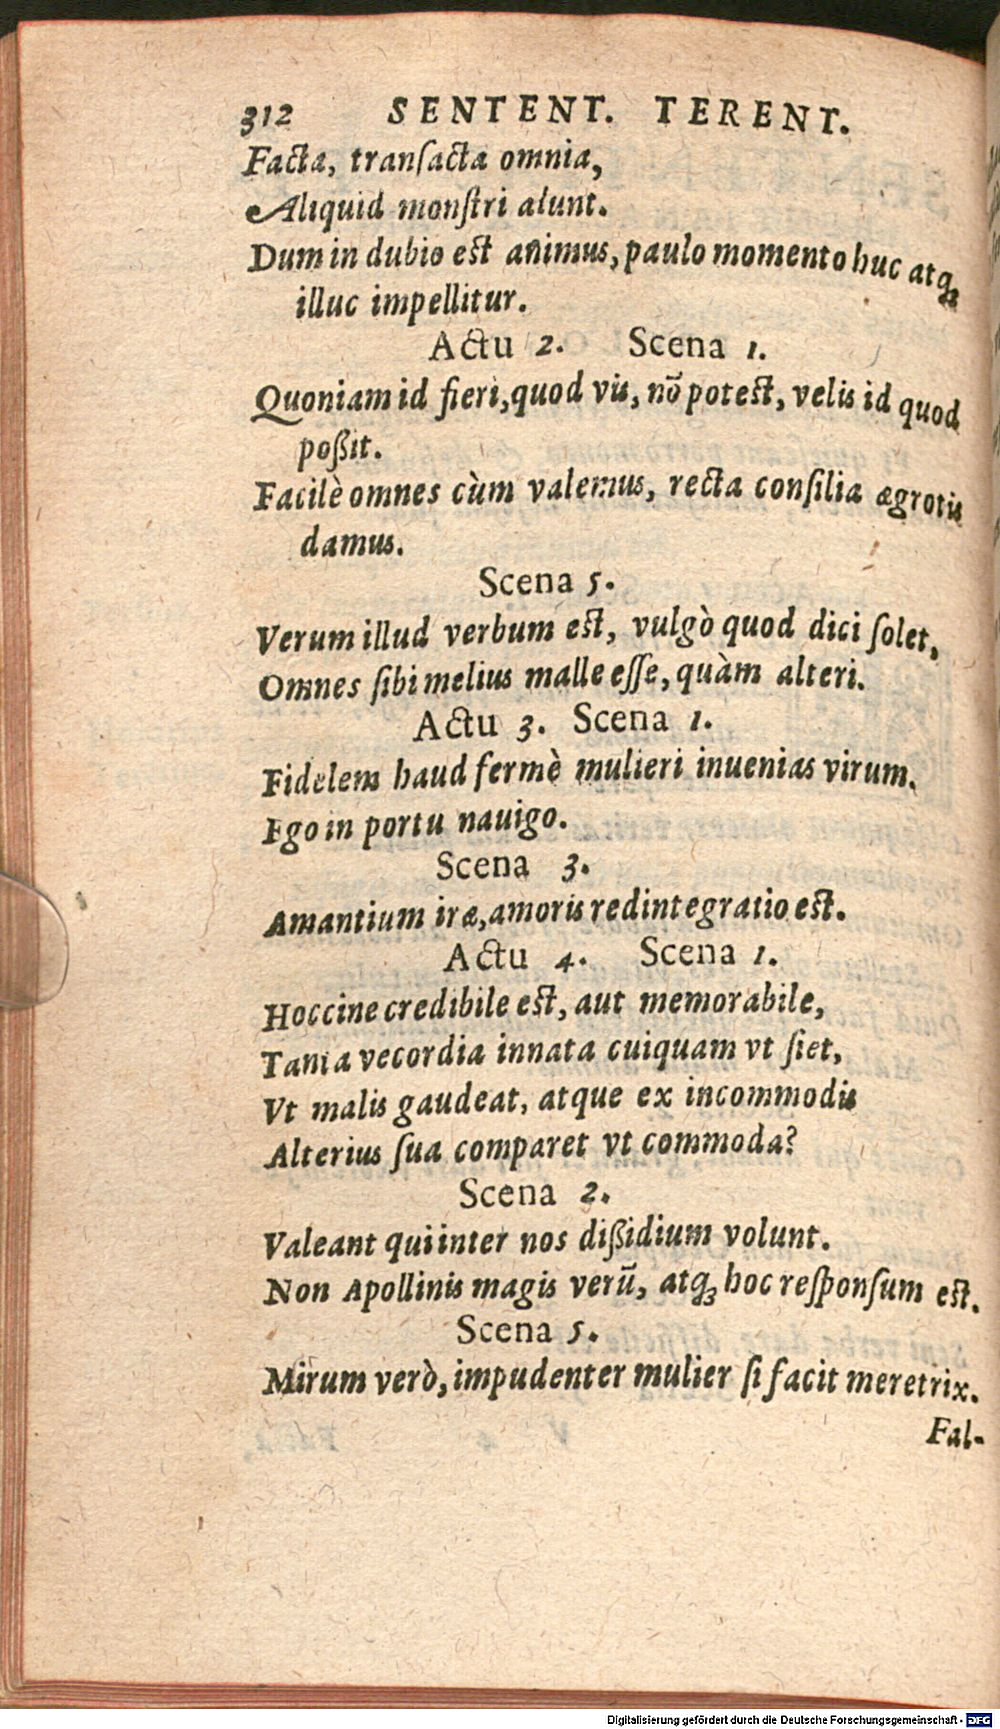 312 SENTENT. TERENT.
Facta, transacta omnia,
Aliquid monſtri alunt.
Dum in dubio eſt animus, paulo momento huc atq;
illuc impellitur.
Actu 2. Scena 1.
Quoniam id fieri, quod vis, nō poteſt, velis id quod
poßit.
Facilè omnes cùm valemus, recta conſilia ægrotis
damus.
Scena 5.
Verum illud verbum eſt, vulgò quod dici ſolet,
Omnes ſibi melius malle eſſe, quàm alteri.
Actu 3. Scena 1.
Fidelem haud fermè mulieri inuenias virum.
Ego in portu nauigo.
Scena 3.
Amantium iræ, amoris redintegratio eſt.
Actu 4. Scena 1.
Hoccine credibile eſt, aut memorabile,
Tanta vecordia innata cuiquam vt ſiet,
Vt malis gaudeat, atque ex incommodis
Alterius ſua comparet vt commoda?
Scena 2.
Valeant qui inter nos dißidium volunt.
Non Apollinis magis verū, atq; hoc reſponſum eſt.
Scena 5.
Mirum verò, impudenter mulier ſi facit meretrix.
Fal-
Digitalisierung gefördert durch die Deutsche Forschungsgemeinschaft - DFG